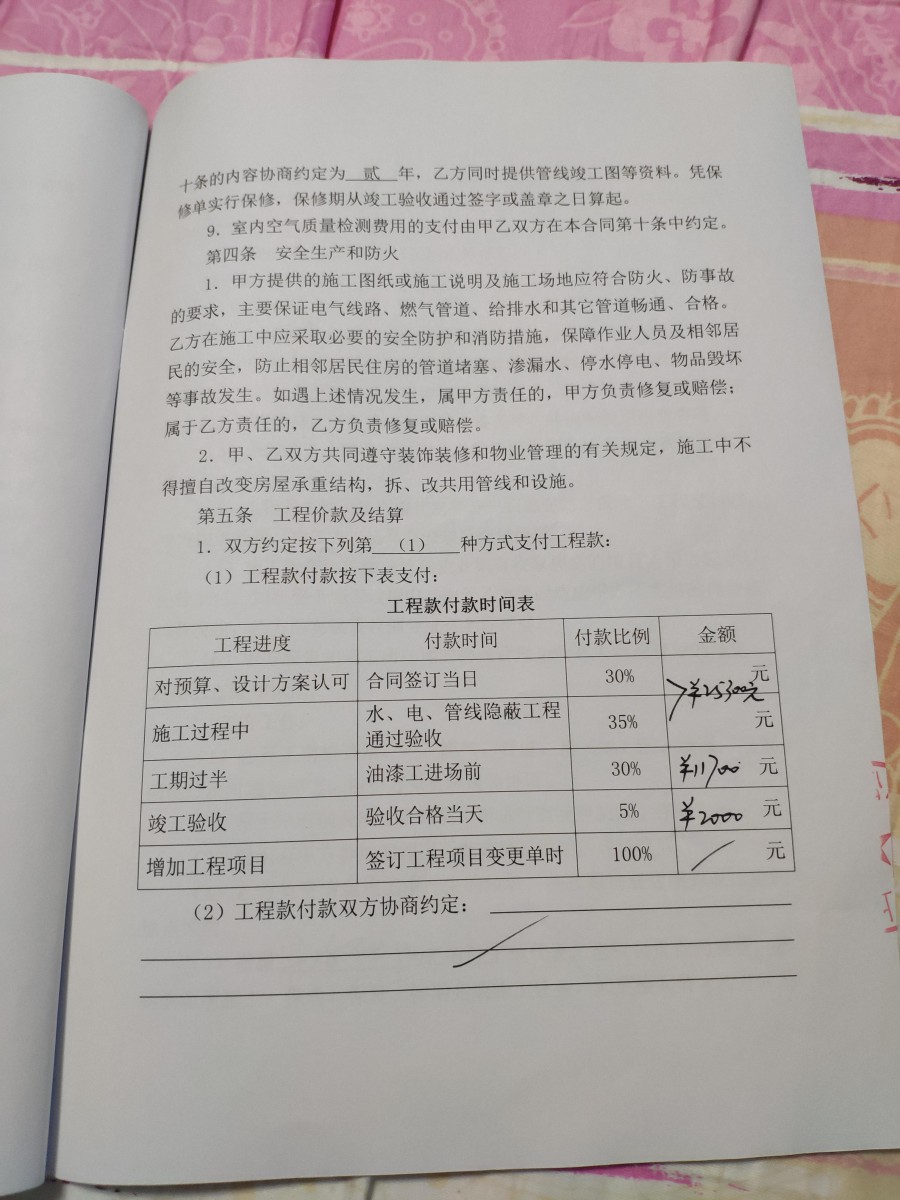 十条的内容协商约定为 贰 年，乙方同时提供管线竣工图等资料。凭保
修单实行保修，保修期从竣工验收通过签字或盖章之日算起。
9. 室内空气质量检测费用的支付由甲乙双方在本合同第十条中约定。
第四条 安全生产和防火
1. 甲方提供的施工图纸或施工说明及施工场地应符合防火、防事故
的要求，主要保证电气线路、燃气管道、给排水和其它管道畅通、合格。
乙方在施工中应采取必要的安全防护和消防措施，保障作业人员及相邻居
民的安全，防止相邻居民住房的管道堵塞、渗漏水、停水停电、物品毁坏
等事故发生。如遇上述情况发生，属甲方责任的，甲方负责修复或赔偿；
属于乙方责任的，乙方负责修复或赔偿。
2. 甲、乙双方共同遵守装饰装修和物业管理的有关规定，施工中不
得擅自改变房屋承重结构，拆、改共用管线和设施。
第五条 工程价款及结算
1. 双方约定按下列第 （1） 种方式支付工程款：
（1）工程款付款按下表支付：
工程款付款时间表
工程进度 付款时间 付款比例 金额
对预算、设计方案认可 合同签订当日 30% 元
¥25300元
施工过程中 水、电、管线隐蔽工程
通过验收 35% 元
工期过半 油漆工进场前 30% ¥11700 元
竣工验收 验收合格当天 5% ¥2000 元
增加工程项目 签订工程项目变更单时 100% 元
（2）工程款付款双方协商约定：